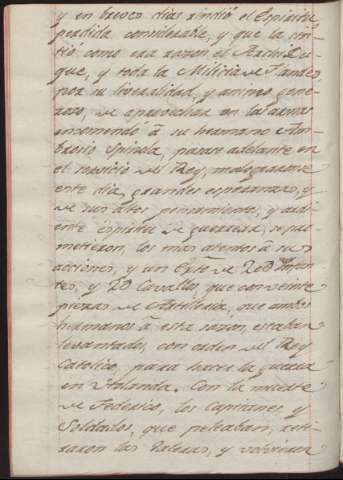 y en breves dias rindió el Espiritu,
perdida considerable, y que la sin-
tió como era razon el Archidu-
que, y toda la Milicia de Flandes,
por su liveralidad, y animo gene-
roso, de aprovechar en las armas
encomendo â su hermano Am-
brosio Spinola, pasase adelante en
el servicio del Rey, malograronse
este dia grandes esperanzas, y
de sus altos pensamientos, y ardi-
ente espiritu de guerrear, se pro-
metieron, los mas atentos â sus
acciones, y un Exto de 20D Infan-
tes, y 2D Cavallos, que con veinte
piezas de Artilleria, que ambos
hermanos â esta sazon, estaban
levantando, con orden del Rey
Catolico, para hacer la guerra
en Holanda. Con la muerte
de Federico, los Capitanes y
Soldados, que peleaban, reti-
raron las Galeras, y volvieron